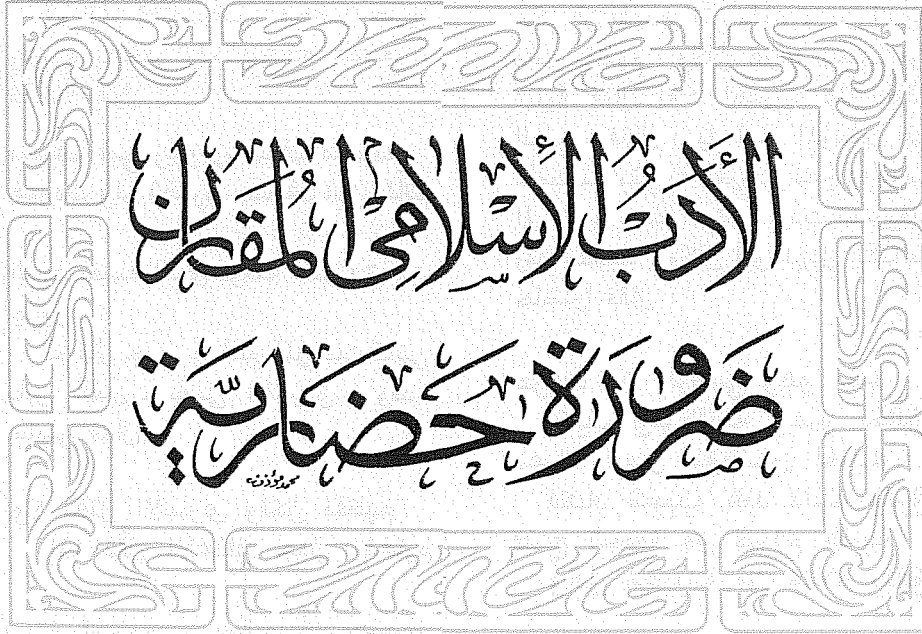 الأَدَبُ الإِسْلامِى المُقَارِن
ضَرُورَة حَضَارِيَّة